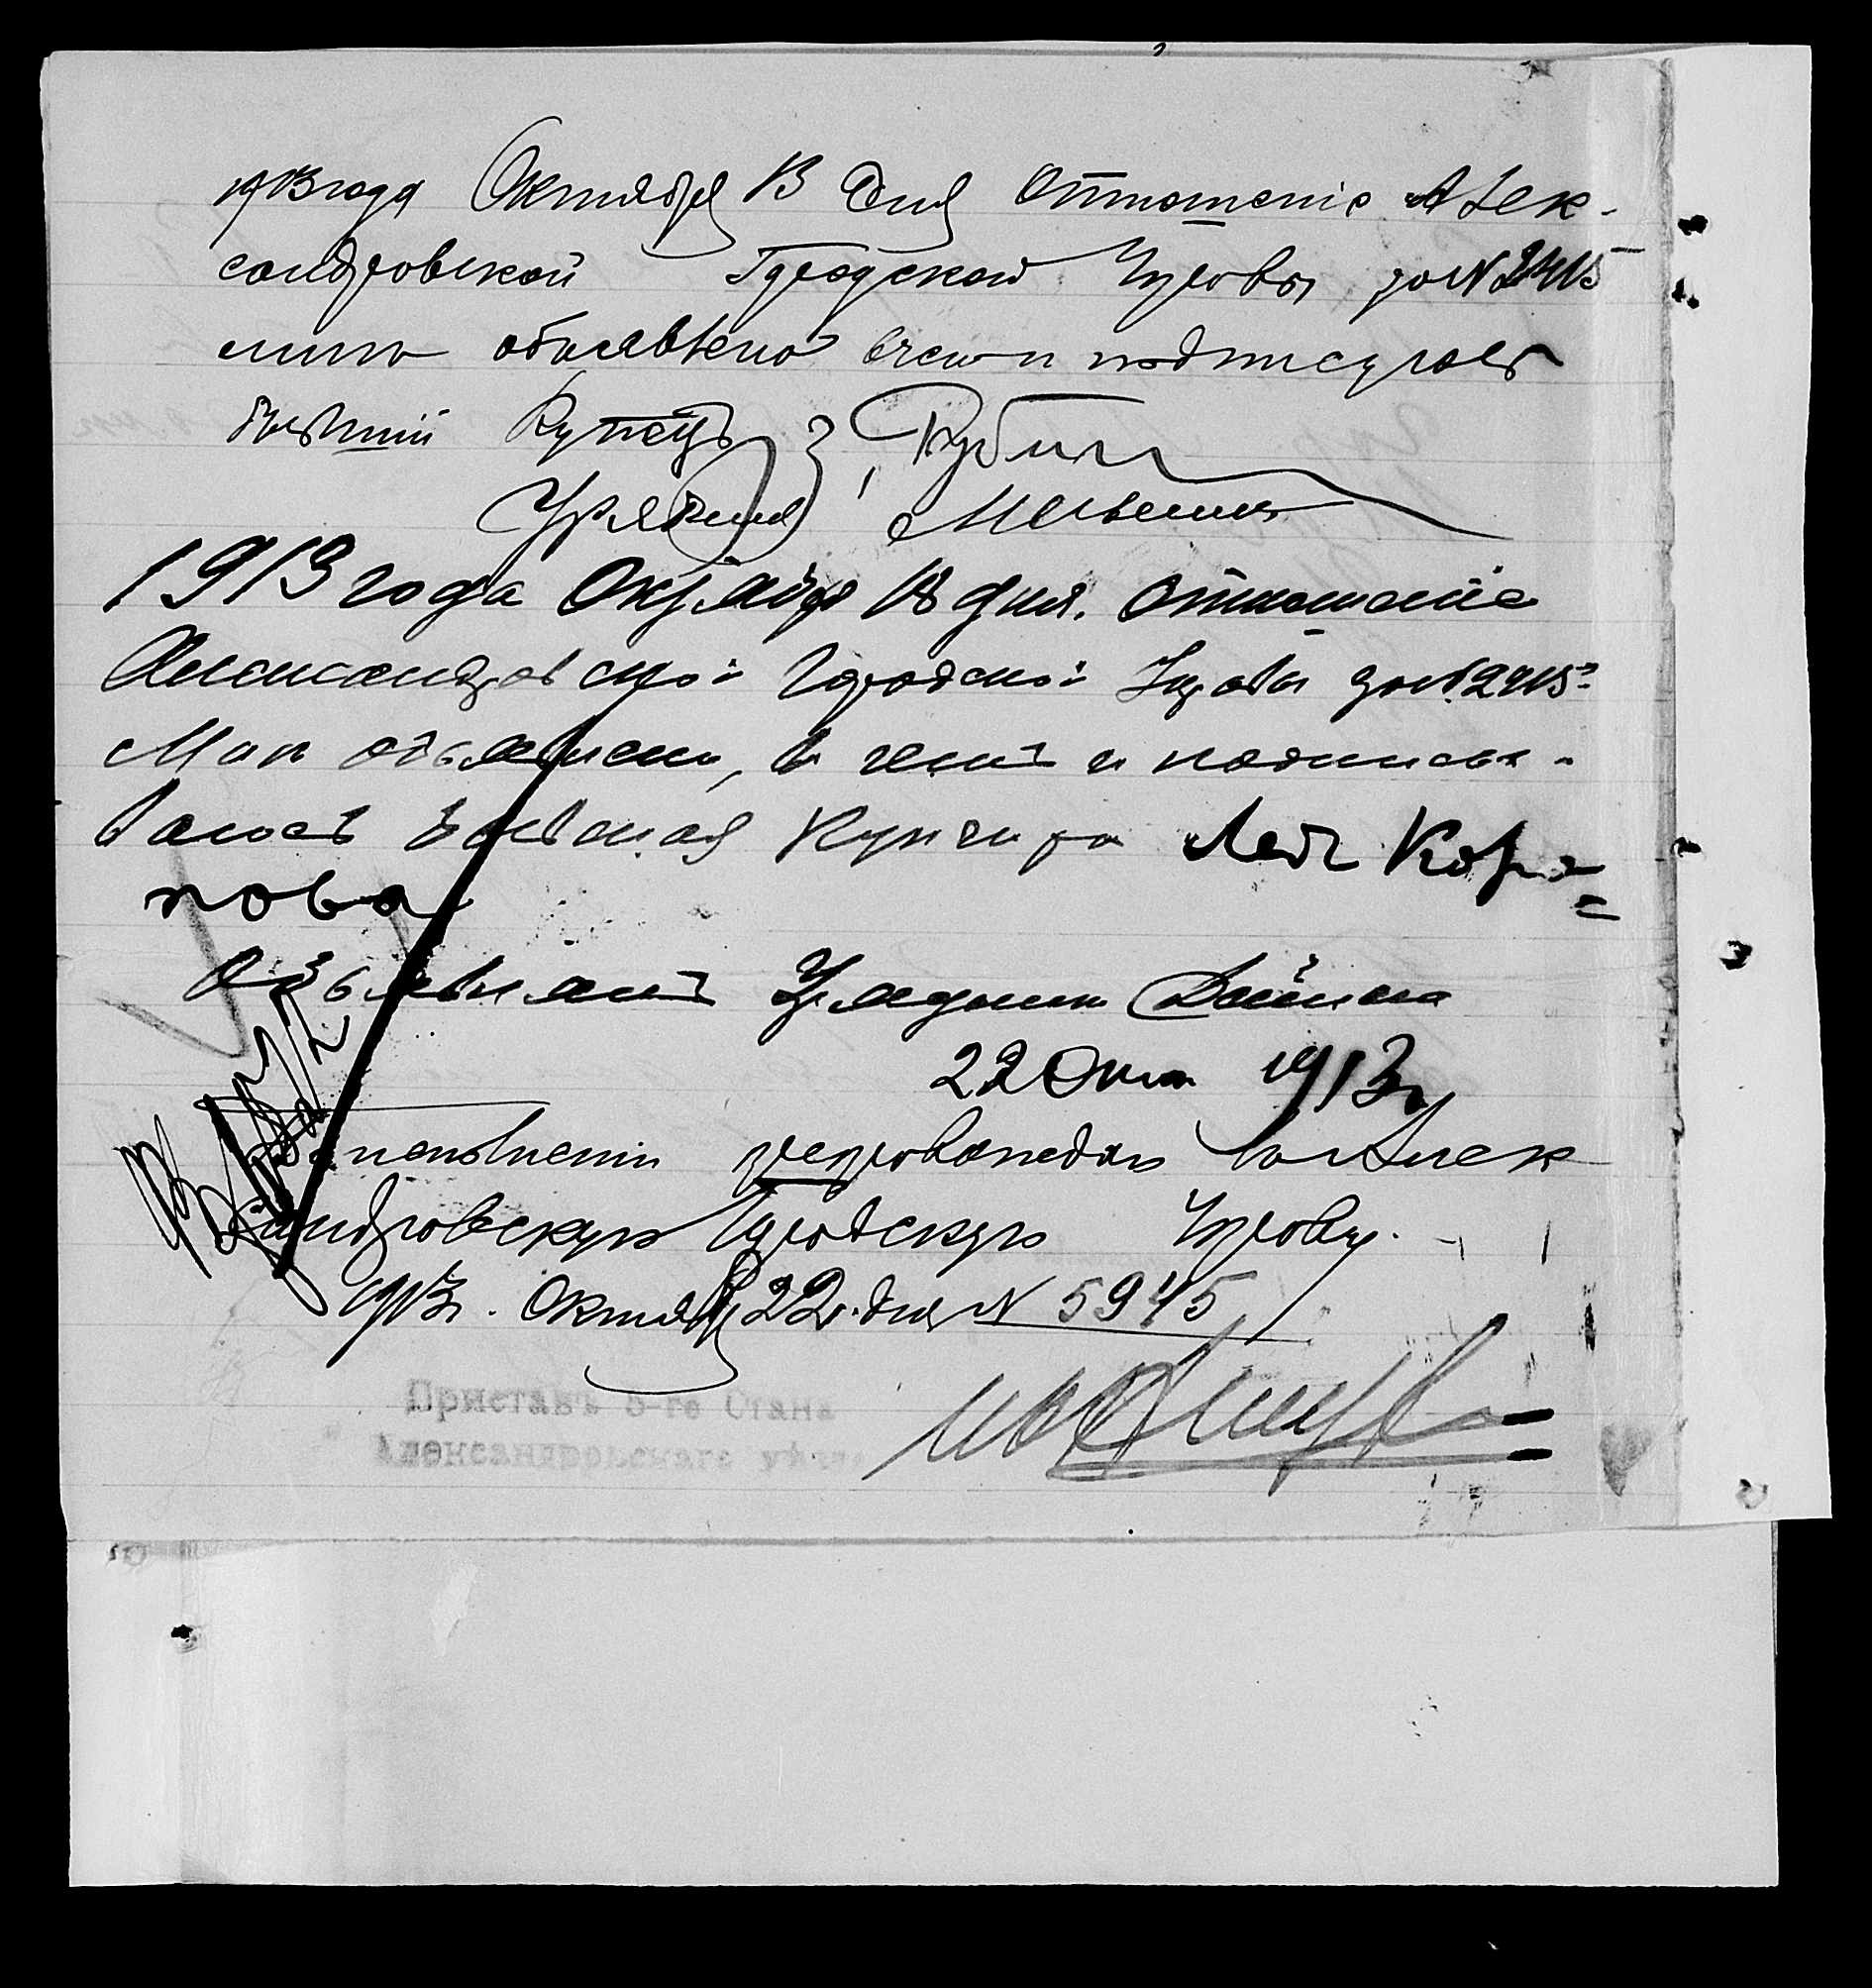 1913 года Октября 13 дня отношеніе Алек-
сандровской Городской Управы за № 2415
мнѣ объявлено в чем и подписуюсь
бывшій Купецъ З. Рубин
Урядник
1913 года Октября 18 дня. отношеніе
Александровской Городской Управы за № 2415
Мнѣ объявлено, в чемъ и подписы-
валась бывшая Купчиха Лея Коро-
нова
Объявилъ Урядник
22 Окт 1913 г
исполненіи препровождаю в Алек
сандровскую Городскую Управу.
1913 г. Октября 22 дня № 5945
Приставъ 5-го Стана
Александровскаго уѣзда